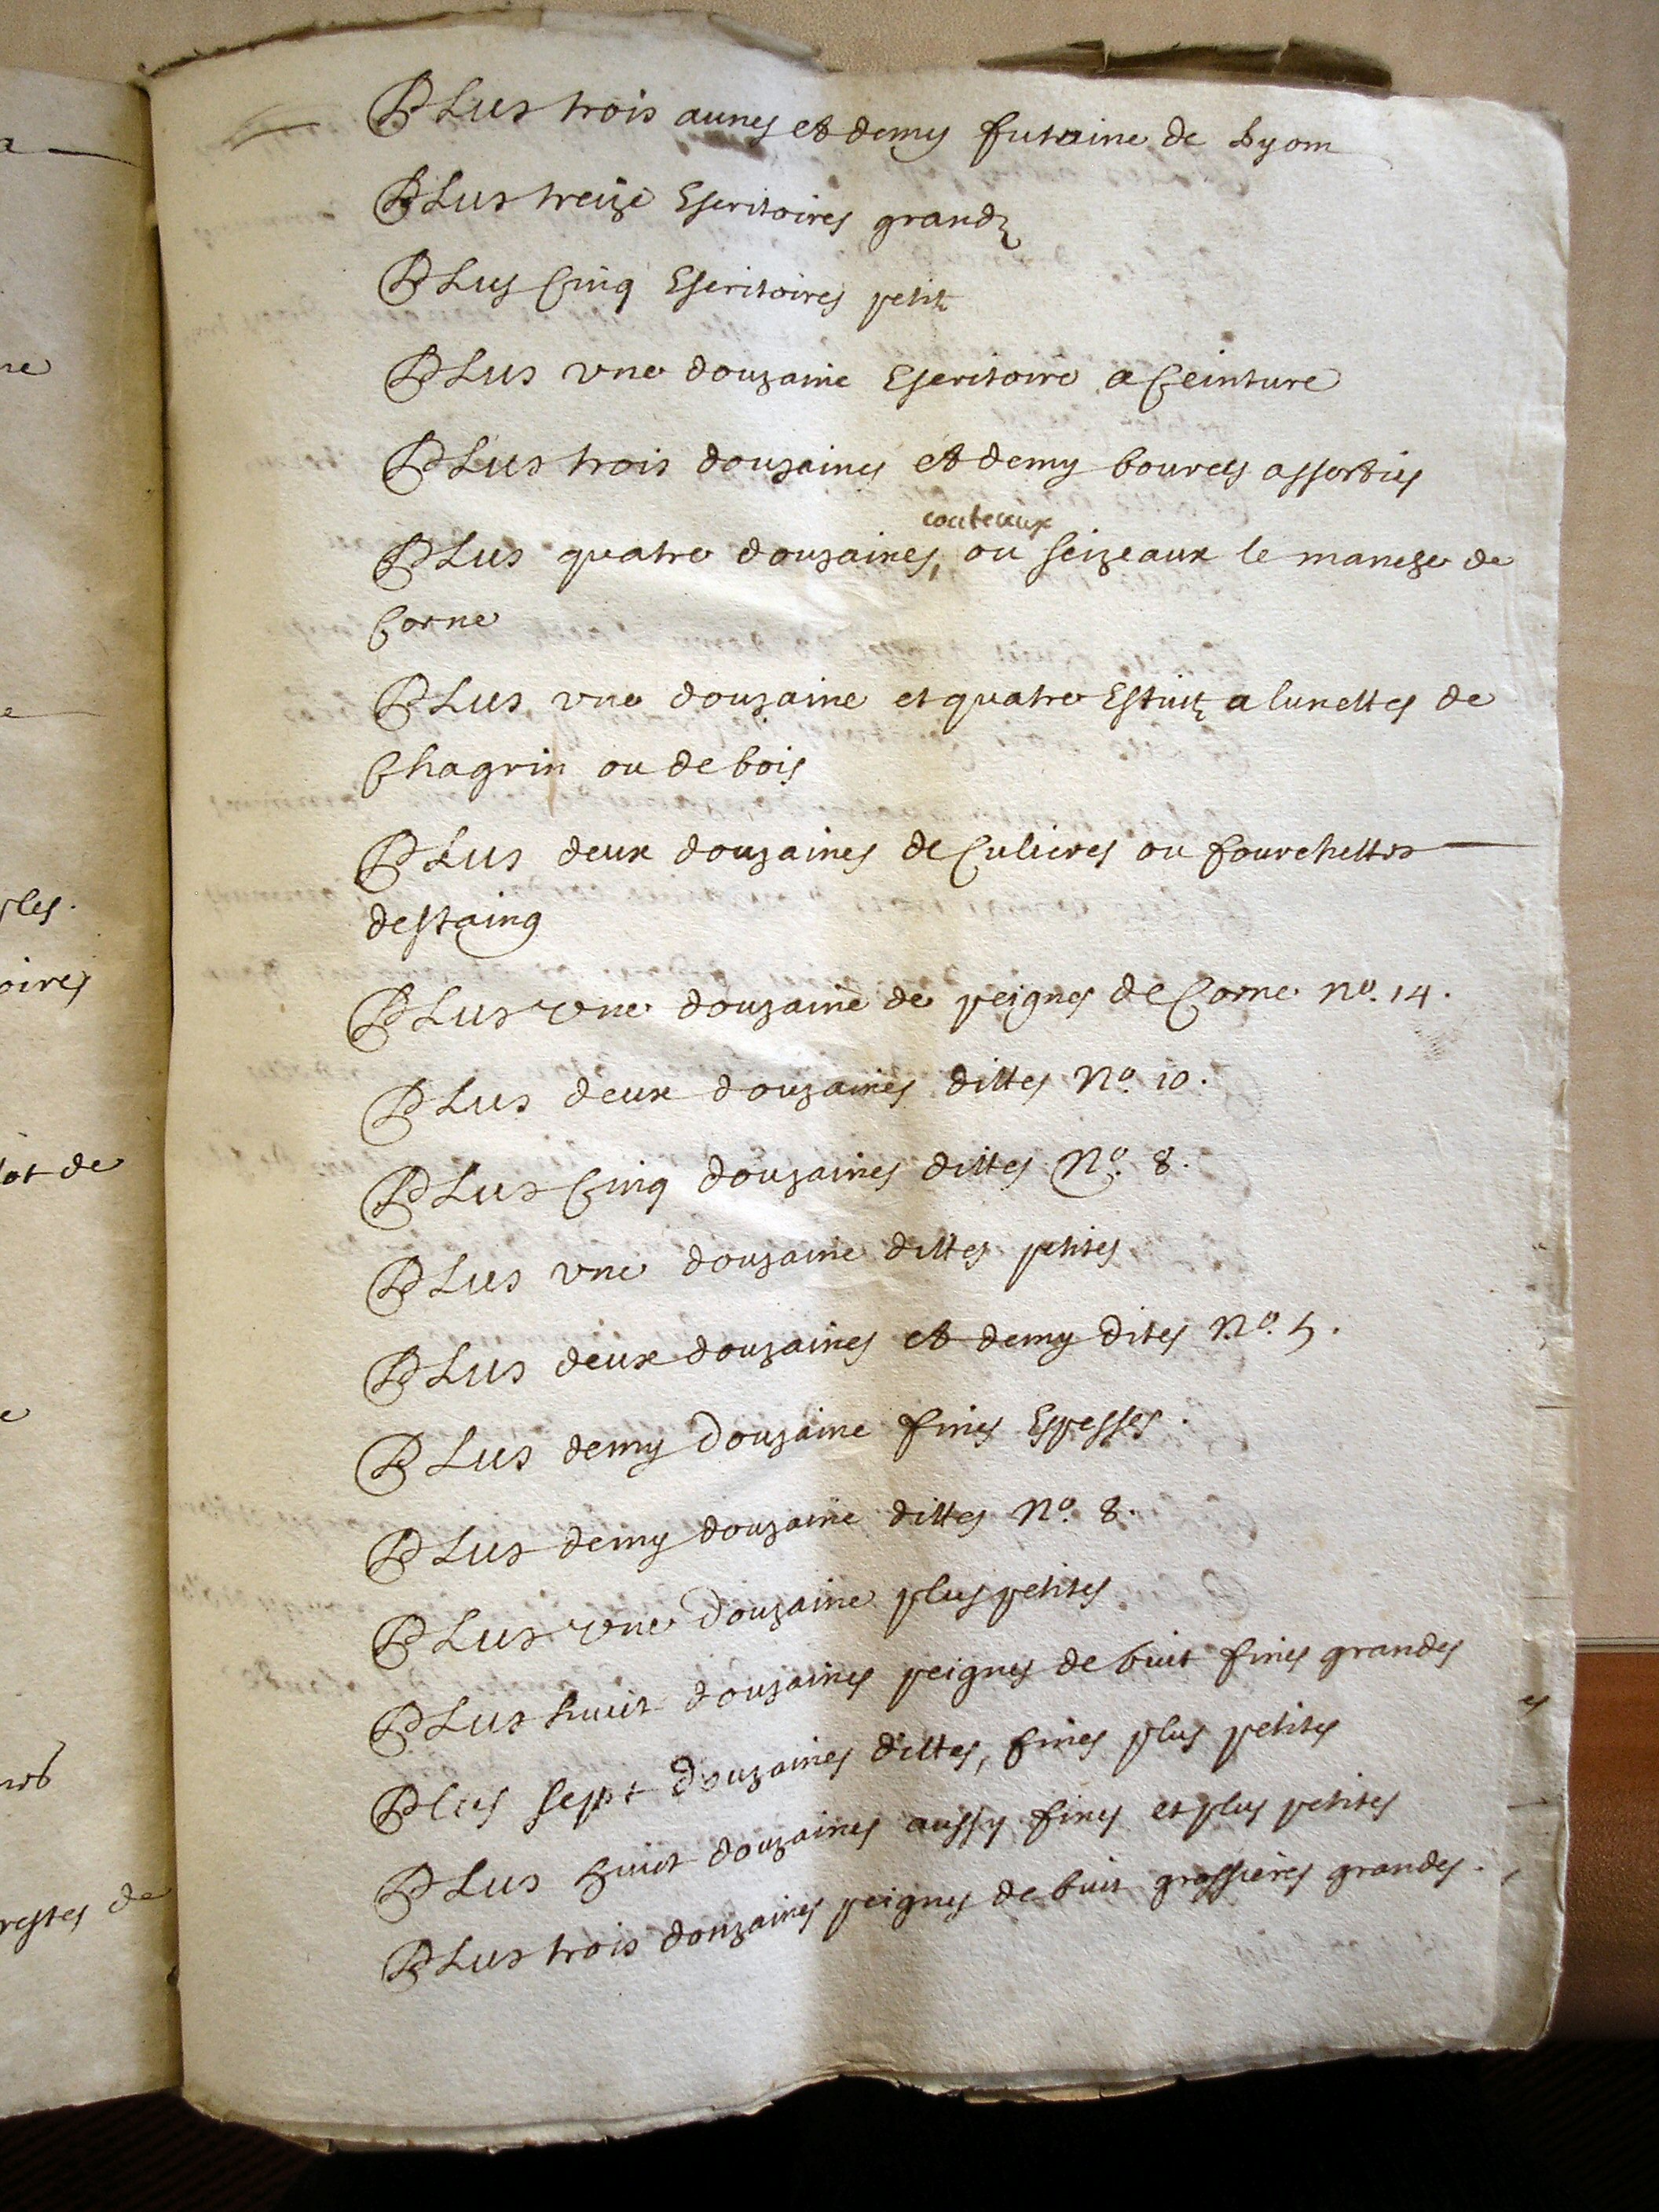 PLus trois aunes et demy futaine de Lyom
PLus treize Escritoires grandz
PLus Cinq Escritoires petitz
PLus vne douzaine Escritoire a Ceinture
PLus trois douzaines et demy bources assorties
couteaux
PLus quatre douzaines, ou seizeaux le manche de
Corne
PLus vne douzaine et quatre Estuitz a lunettes de
Chagrin ou de bois
PLus deux douzaines de Culieres ou fourchettes
destaing
PLus vne douzaine de peignes de Corne no. 14.
PLus deux douzaines dittes No 10.
PLus Cinq douzaines dittes No. 8.
PLus vne douzaine dittes petites
PLus deux douzaines et demy dites No. 5.
PLus demy douzaine fines Espesses.
PLus demy douzaine dittes No. 8.
PLus vne douzaine plus petites
PLus huit douzaines peignes de buit fines grandes
Plus sept douzaines dittes, fines plus petites
PLus huit douzaines aussy fines et plus petites
PLus trois douzaines peignes de buit grossieres grandes.
ne
ples.
oires
ot de
restes de